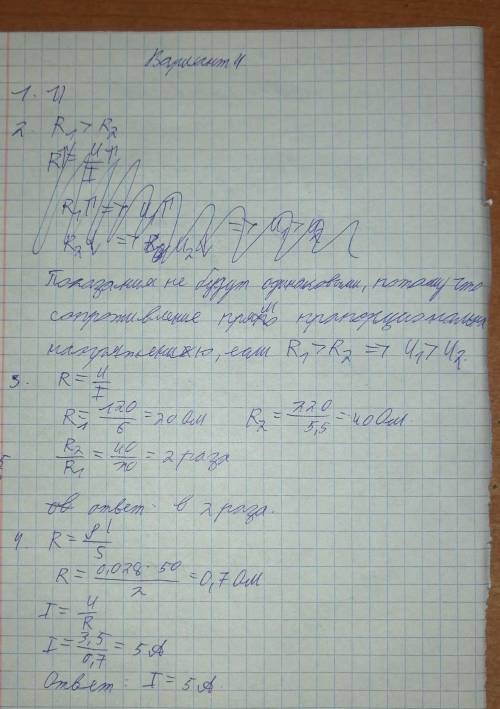 Вариант 4
1. U
2. R₁ > R₂
R↑ = U↑/I
R₁↑ => U₁↑
R₂ => U₂ => U₁ > U₂
Показания не будут одинаковыми, потому что
сопротивление прямо пропорционально
напряжению, если R₁ > R₂ => U₁ > U₂.
3. R = U/I
R₁ = 120/6 = 20 Ом R₂ = 220/5,5 = 40 Ом
R₂/R₁ = 40/20 = 2 раза
ответ: в 2 раза.
4. R = ρl/S
R = 0,028 · 50/2 = 0,7 Ом
I = U/R
I = 3,5/0,7 = 5 А
Ответ: I = 5 А.